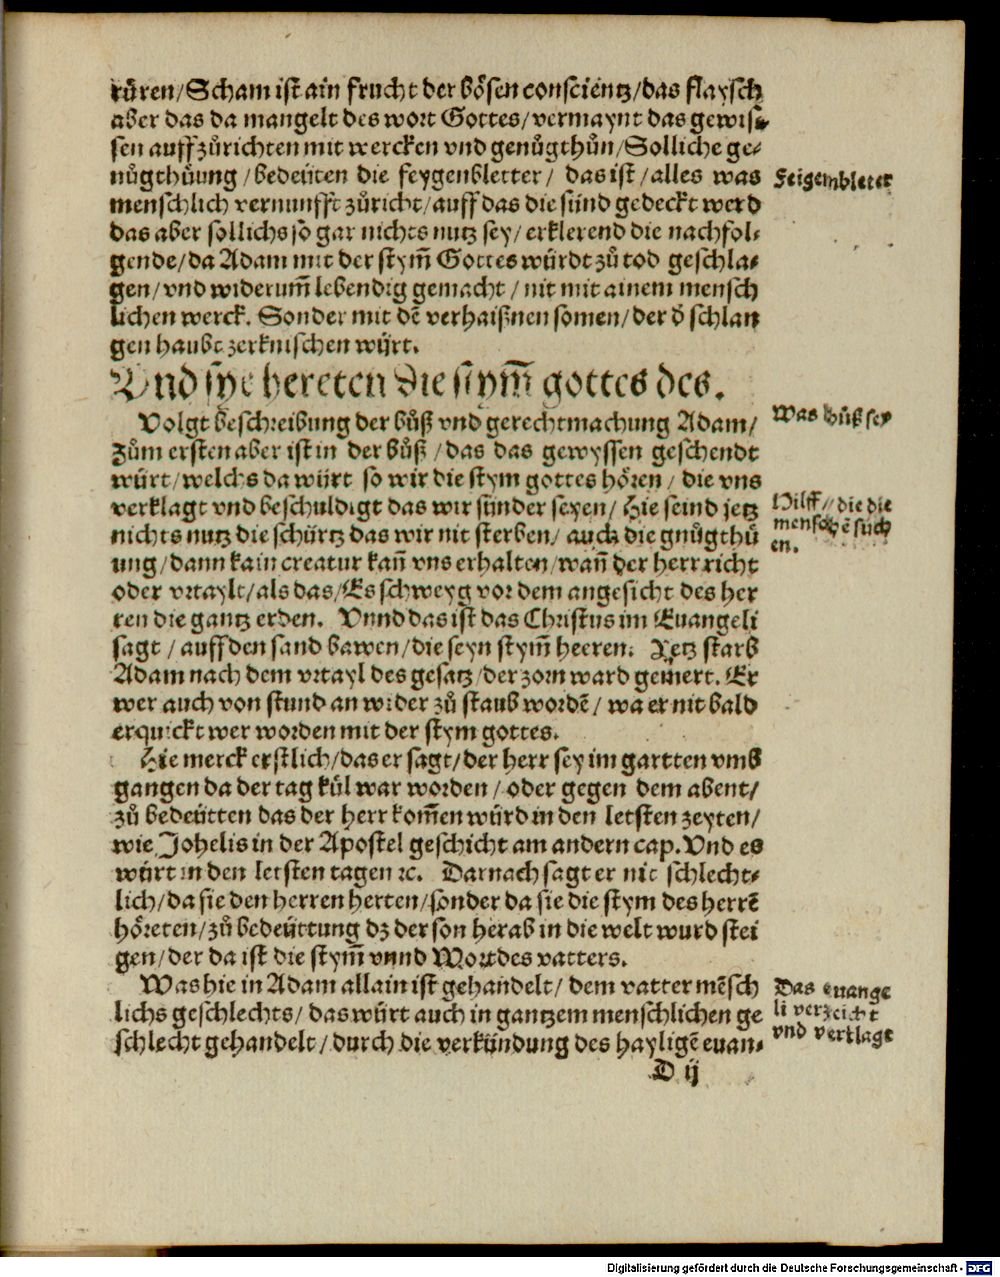 růren/Scham ist ain frucht der bösen conscientz/das flaysch
aber das da mangelt des wort Gottes/vermaynt das gewis-
sen auffzůrichten mit wercken vnd genůgthůn/Solliche ge-
nůgthůung/bedeüten die feygenbletter/ das ist/alles was
menschlich vernunfft zůricht/auff das die sünd gedeckt werd
das aber sollichs so gar nichts nutz sey/erklerend die nachfol-
gende/da Adam mit der stym̄ Gottes würdt zů tod geschla-
gen/vnd widerum̄ lebendig gemacht/nit mit ainem mensch
lichen werck. Sonder mit dē verhaißnen somen/der ð schlan
gen haubt zerknischen würt.
Vnd sye hereten die stym̄ gottes des.
Volgt beschreibung der bůß vnd gerechtmachung Adam/
Zům ersten aber ist in der bůß/das das gewyssen geschendt
würt/welchs da würt so wir die stym gottes hören/die vns
verklagt vnd beschuldigt das wir sünder seyen/Hie seind jetz
nichts nutz die schürtz das wir nit sterben/auch die gnůgthů
ung/dann kain creatur kan̄ vns erhalten/wan̄ der herr richt
oder vrtaylt/als das/Es schweyg vor dem angesicht des her
ren die gantz erden. Vnnd das ist das Christus im Euangeli
sagt/auff den sand bawen/die seyn stym̄ heeren. Yetz starb
Adam nach dem vrtayl des gesatz/der zorn ward gemert. Er
wer auch von stund an wider zů staub wordē/wa er nit bald
erquickt wer worden mit der stym gottes.
Hie merck erstlich/das er sagt/der herr sey im gartten vmb
gangen da der tag kül war worden/oder gegen dem abent/
zů bedeütten das der herr kom̄en würd in den letsten zeyten/
wie Johelis in der Apostel geschicht am andern cap. Vnd es
würt in den letsten tagen ꝛc. Darnach sagt er nit schlecht-
lich/da sie den herren herten/sonder da sie die stym des herrē
höreten/zů bedeüttung dz der son herab in die welt wurd stei
gen/der da ist die stym̄ vnnd Wort des vatters.
Was hie in Adam allain ist gehandelt/dem vatter mēsch
lichs geschlechts/das würt auch in gantzem menschlichen ge
schlecht gehandelt/durch die verkündung des hayligē euan-
D ij
Feigembleter
Was bůß sey
Hilff/die die
menschē sůch
en.
Das euange
li verzeicht
vnd vertlage
Digitalisierung gefördert durch die Deutsche Forschungsgemeinschaft - DFG